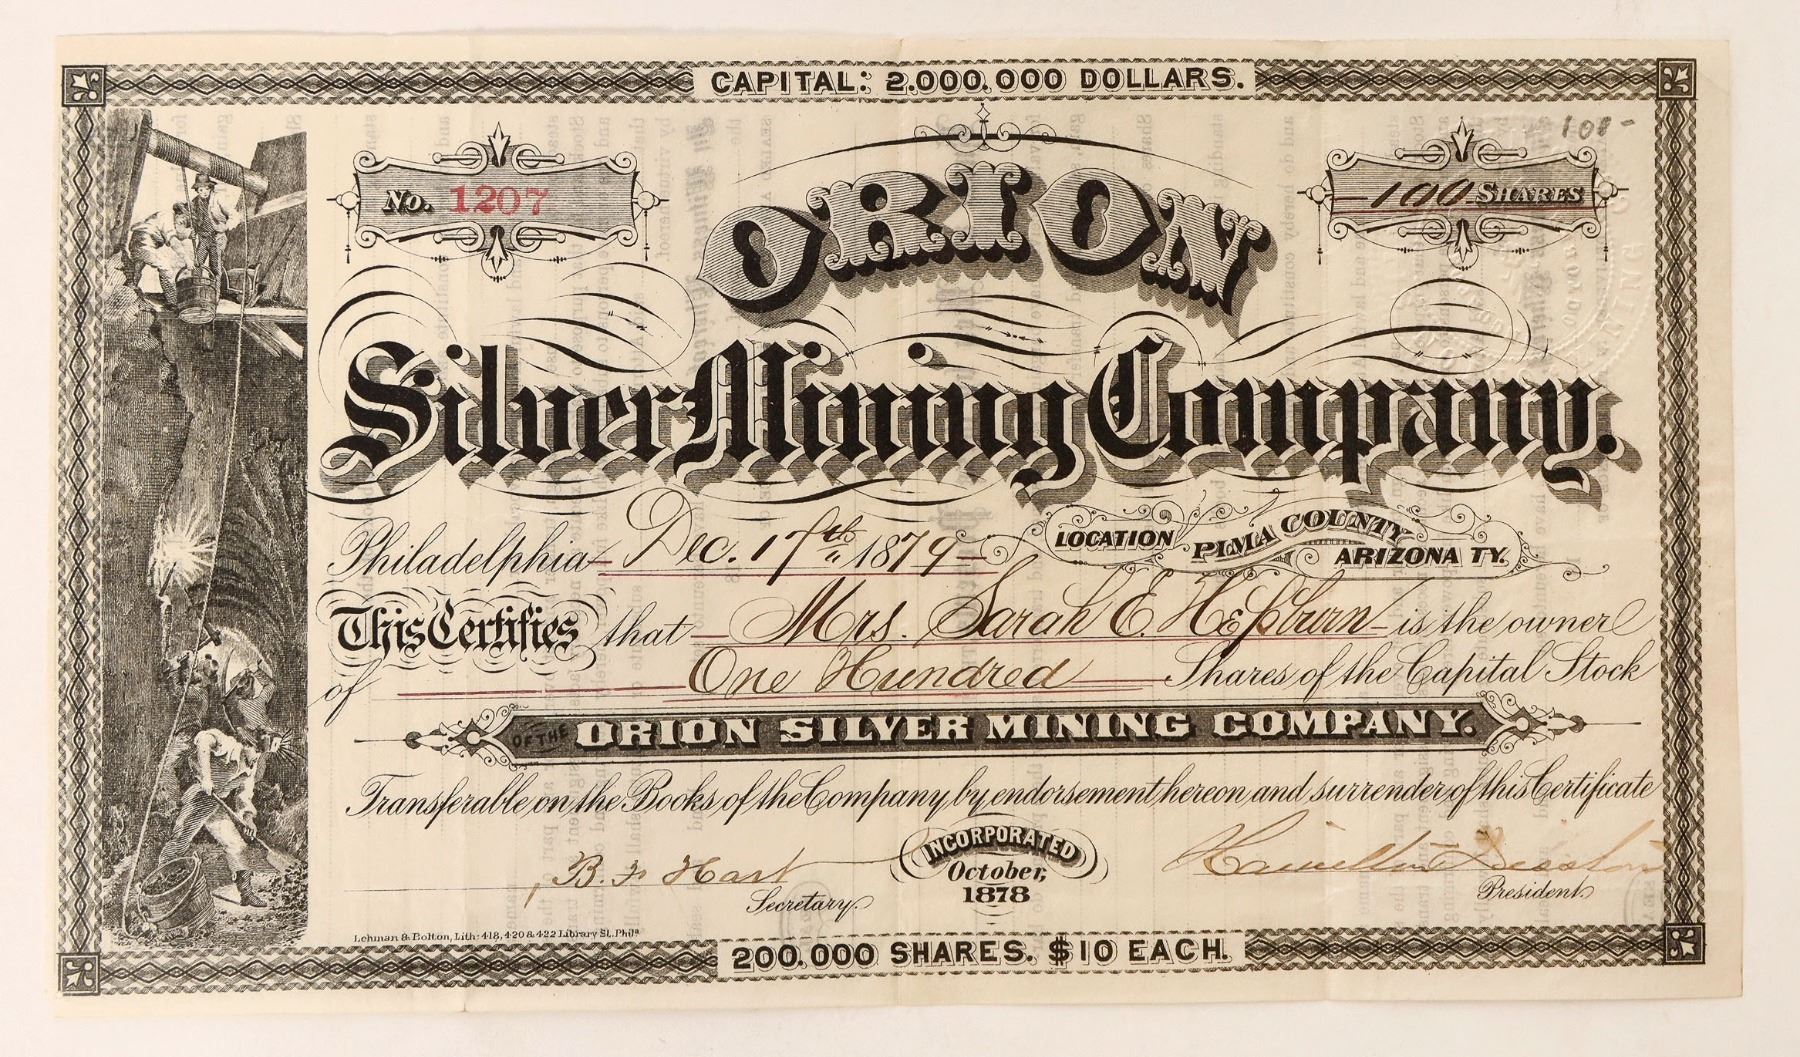 CAPITAL: 2.000.000 DOLLARS.
108-
No. 1207
100 SHARES
ORION
Silver Mining Company.
Philadelphia Dec. 17th 1879
LOCATION PIMA COUNTY ARIZONA TY.
This Certifies that Mrs. Sarah E. Hepburn is the owner
of One Hundred Shares of the Capital Stock
OF THE ORION SILVER MINING COMPANY.
Transferable on the Books of the Company by endorsement hereon and surrender of this Certificate
INCORPORATED
October,
1878
B. F. Hart
Secretary.
Hamilton Disston
President
Lehman & Bolton, Lith: 418, 420 & 422 Library St. Phila
200.000 SHARES. $10 EACH.